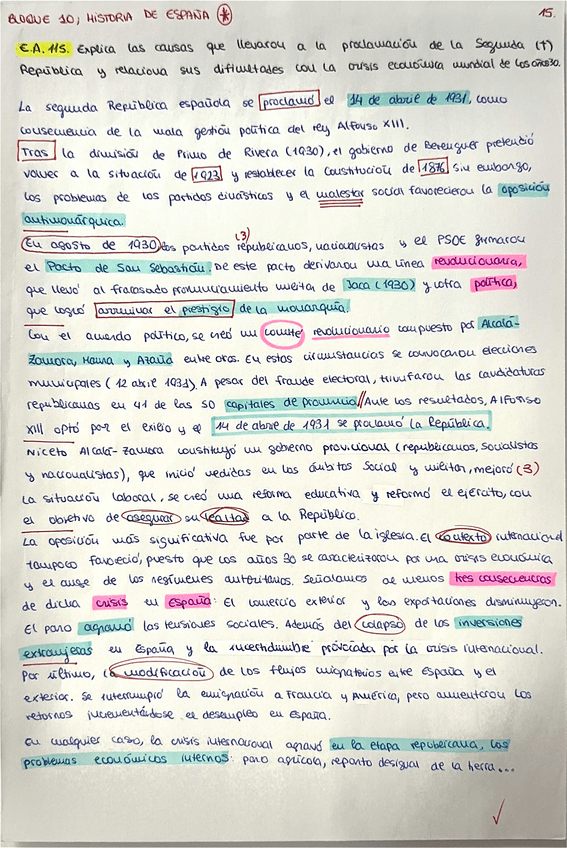 BLOQUE 10, HISTORIA DE ESPAÑA * 15.
E.A. 115. Explica las causas que llevarou a la proclamación de la Segunda (1)
República y relaciona sus dificultades con la crisis económica mundial de los años 30.
La segunda República española se proclamó el 14 de abril de 1931, como
consecuencia de la mala gestión política del rey Alfonso XIII.
Tras la dimisión de Primo de Rivera (1930), el gobierno de Berenguer pretendió
volver a la situación de 1923 y restablecer la Constitución de 1876. Sin embargo,
los problemas de los partidos dinásticos y el malestar social favorecieron la oposición
antimonárquica.
En agosto de 1930 los partidos republicanos, nacionalistas y el PSOE firmarou (3)
el Pacto de San Sebastián. De este pacto derivarou una línea revolucionaria,
que llevó al fracasado pronunciamiento militar de Jaca (1930) y otra política,
que logró arruinar el prestigio de la monarquía.
Con el acuerdo político, se creó un comité revolucionario compuesto por Alcalá-
Zamora, Maura y Azaña entre otros. En estas circunstancias se convocarou elecciones
municipales (12 abril 1931). A pesar del fraude electoral, triunfarou las candidaturas
republicanas en 41 de las 50 capitales de provincia // Ante los resultados, Alfonso
XIII optó por el exilio y el 14 de abril de 1931 se proclamó la República.
Niceto Alcalá-Zamora constituyó un gobierno provisional (republicanos, socialistas
y nacionalistas), que inició medidas en los ámbitos social y militar, mejoró (3)
la situación laboral, se creó una reforma educativa y reformó el ejército, con
el objetivo de asegurar su lealtad a la República.
La oposición más significativa fue por parte de la iglesia. El contexto internacional
tampoco favoreció, puesto que los años 30 se caracterizarou por una crisis económica
y el auge de los regímenes autoritarios. Señalamos al menos tres consecuencias
de dicha crisis en España: El comercio exterior y las exportaciones disminuyeron.
El paro agravó las tensiones sociales. Además del colapso de las inversiones
extranjeras en España y la incertidumbre provocada por la crisis internacional.
Por último, la modificación de los flujos migratorios entre España y el
exterior. Se interrumpió la emigración a Francia y América, pero aumentarou los
retornos incrementándose el desempleo en España.
En cualquier caso, la crisis internacional agravó en la etapa republicana, los
problemas económicos internos: paro agrícola, reparto desigual de la tierra...